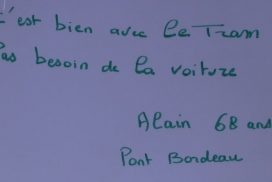 C'est bien avec le Tram
Pas besoin de la voiture
Alain 68 ans
Pont Bordeau